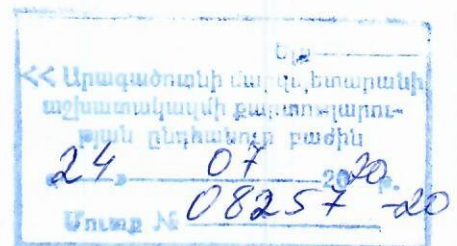 Ելք
ՀՀ Արագածոտնի մարզպետարանի
աշխատակազմի քարտուղարու-
թյան ընդհանուր բաժին
« 24 » 07 2020 թ.
Մուտք № 08257-20